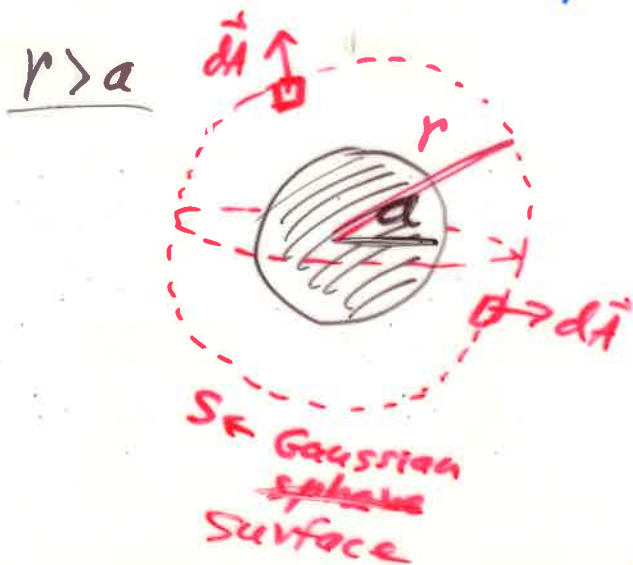 r > a
dA
r
a
dA
S ← Gaussian
sphere
surface